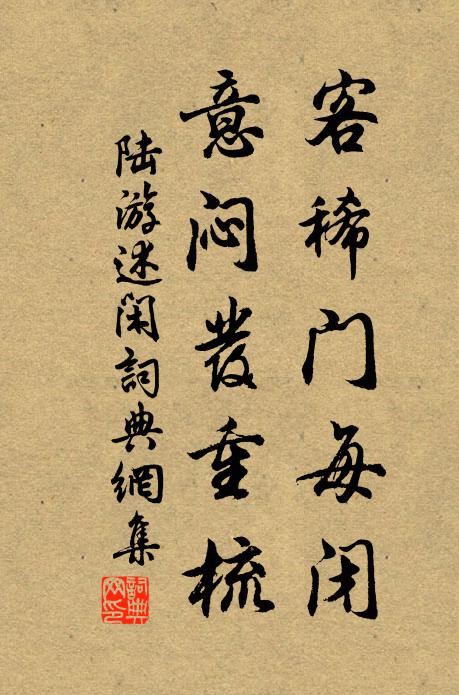 客稀门每闭
意闷發重梳
陆游述闲詞典網集
詞典网印